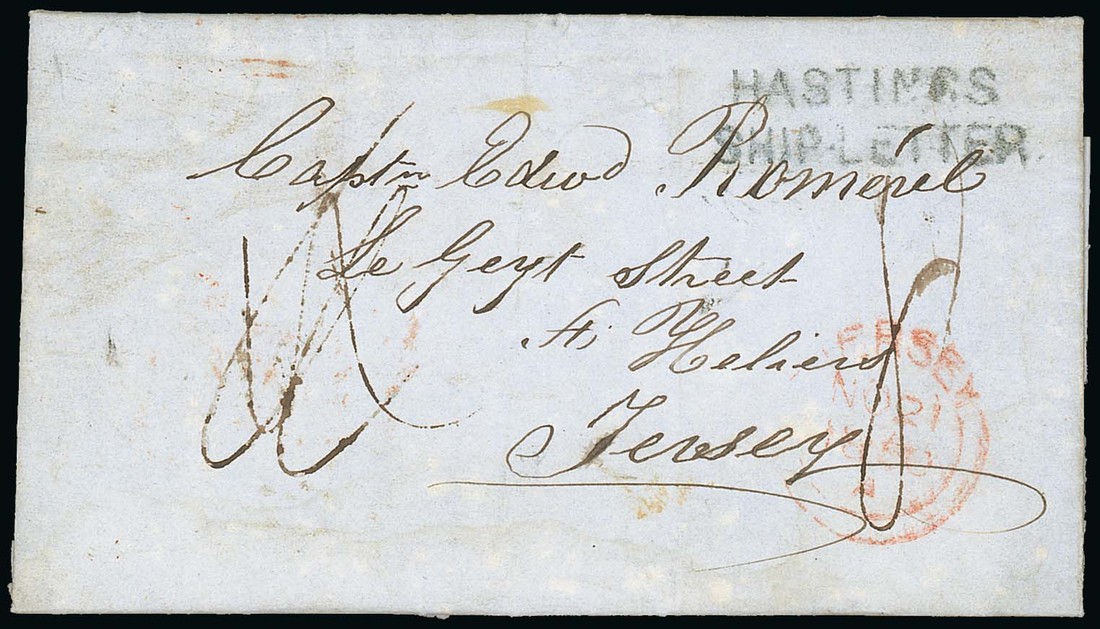 HASTINGS
SHIP-LETTER
Captn Edwd Romeril
Le Geyt Street
St Heliers
Jersey
JERSEY
NO 21
8